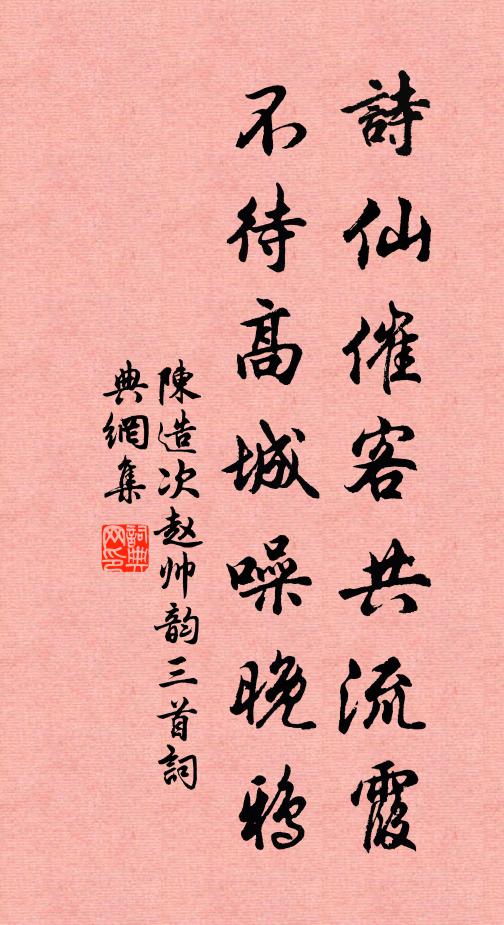 詩仙催客共流霞
不待高城噪晚鴉
陳造次赵帅韵三首詞
典網集
詞典網印